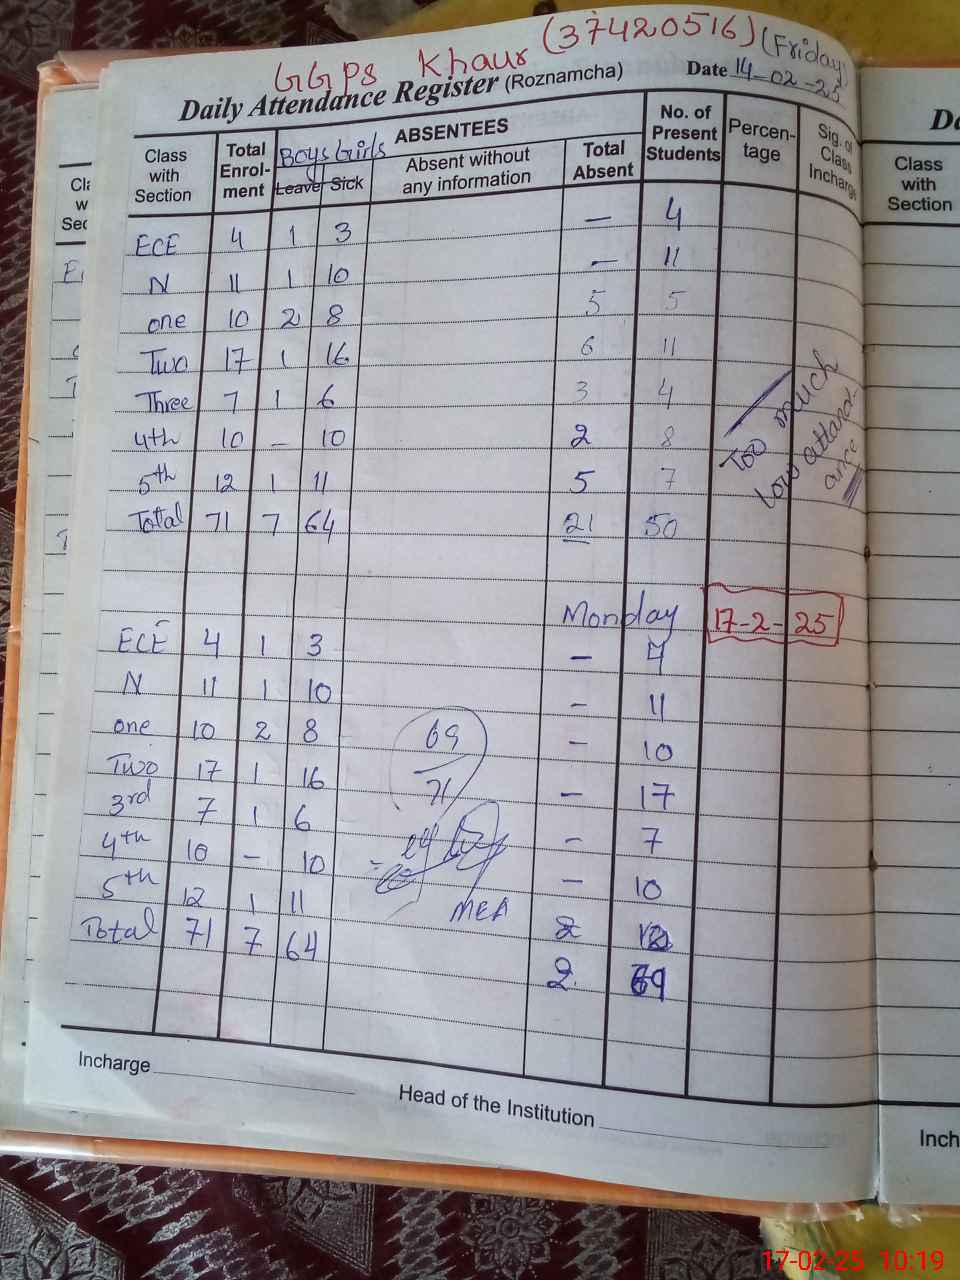 GGPS Khaur (37420516) (Friday)
Daily Attendance Register (Roznamcha) Date 14-02-25
Class with Section Total Enrol-ment Boys Girls ABSENTEES No. of Present Students Percen-tage Sig. of Class Incharge
Leave Sick Absent without any information Total Absent
ECE 4 1 3 — 4
N 11 1 10 — 11
one 10 2 8 5 5
Two 17 1 16 6 11
Three 7 1 6 3 4
4th 10 – 10 2 8
5th 12 1 11 5 7
Total 71 7 64 21 50
Too much
low attand-
ance
Monday 17-2-25
ECE 4 1 3 – 4
N 11 1 10 – 11
one 10 2 8 – 10
Two 17 1 16 – 17
3rd 7 1 6 – 7
4th 10 – 10 – 10
5th 12 1 11 2
Total 71 7 64 2. 69
69
71
MEA
Incharge
Head of the Institution
Cla
w
Sec
Da
Class
with
Section
Inch
17-02-25 10:19